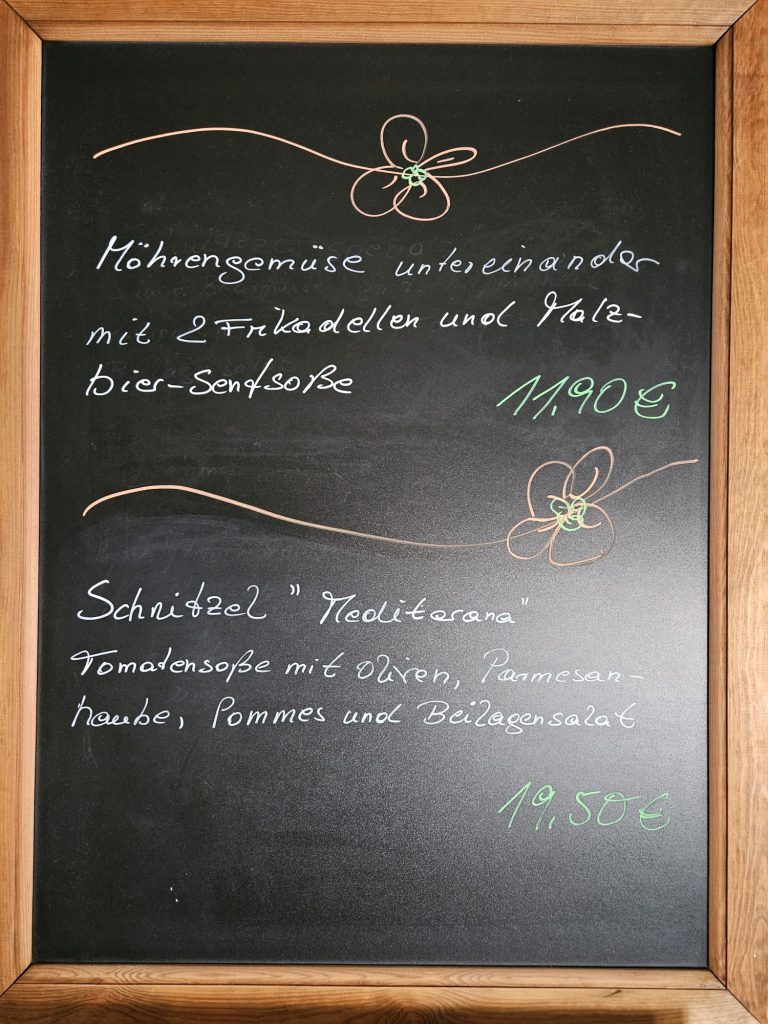 Möhrengemüse untereinander
mit 2 Frikadellen und Malz-
bier-Senfsoße
11,90 €
Schnitzel "Mediterana"
Tomatensoße mit Oliven, Parmesan-
haube, Pommes und Beilagensalat
19,50 €